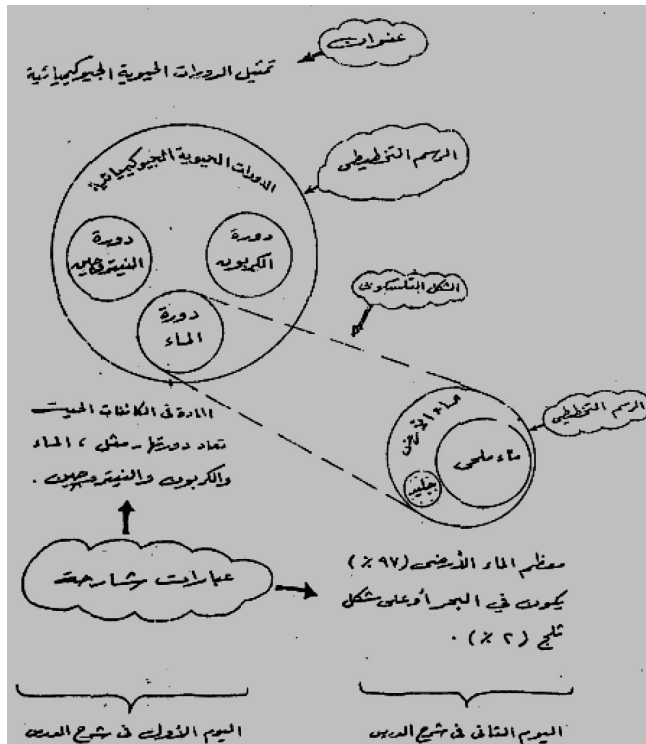 عنوان
تمثيل الدورات الحيوية الجيوكيميائية
الرسم التخطيطي
الدورات الحيوية الجيوكيميائية
دورة
الكربون
دورة
النيتروجين
دورة
الماء
الشكل التلسكوبى
الرسم التخطيطي
ماء الأرض
ماء ملحى
جليد
المادة فى الكائنات الحيت
تعاد دورتها - مثل ، الماء
والكربون والنيتروجين .
عبارات شارحة
معظم الماء الأرضى (٩٧ ٪)
يكون في البحر أو على شكل
ثلج (٢ ٪) .
اليوم الأول فى شرح الدرس
اليوم الثانى فى شرح الدرس